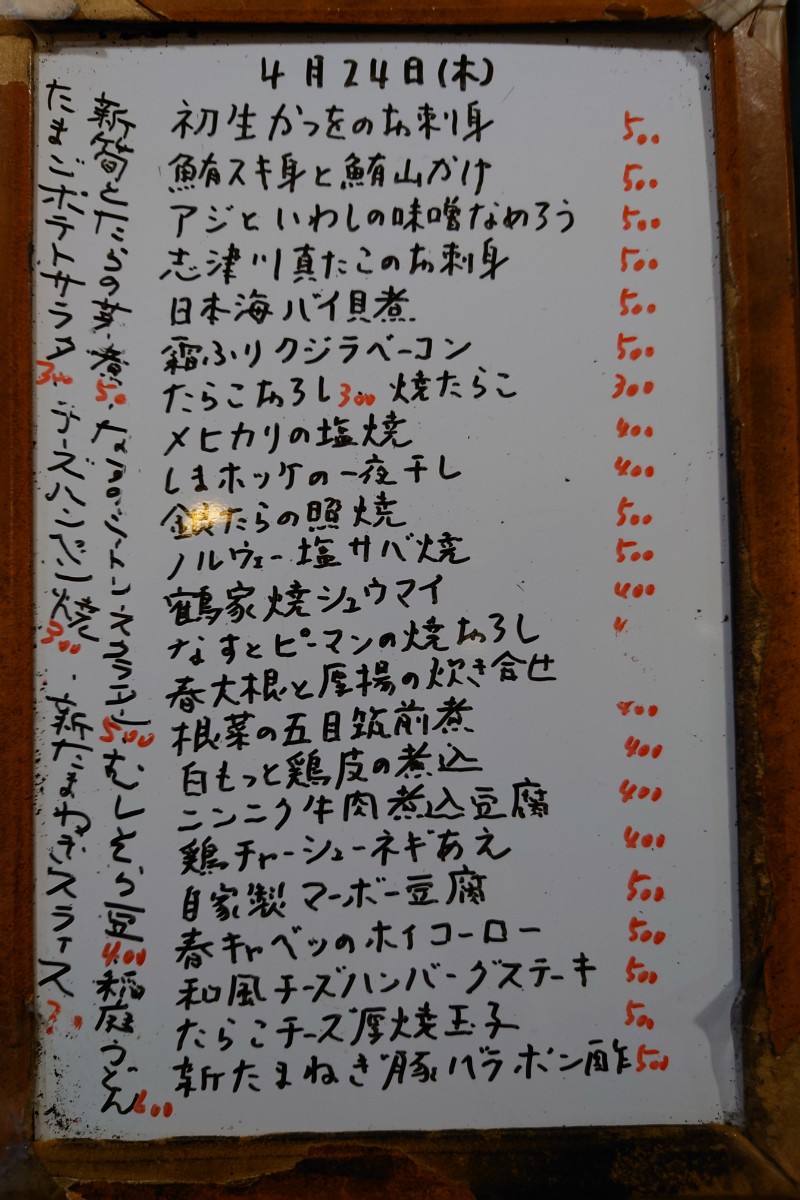 4月24日(木)
初生かつをのお刺身 500
鮪スキ身と鮪山かけ 500
アジといわしの味噌なめろう 500
志津川真たこのお刺身 500
日本海バイ貝煮 500
霜ふりクジラベーコン 500
たらこおろし300 焼たらこ 300
メヒカリの塩焼 400
しまホッケの一夜干し 400
銀たらの照焼 500
ノルウェー塩サバ焼 500
鶴家焼シュウマイ 400
なすとピーマンの焼おろし 4
春大根と厚揚の炊き合せ
根菜の五目筑前煮 400
白もつと鶏皮の煮込 400
ニンニク牛肉煮込豆腐 400
鶏チャーシューネギあえ 400
自家製マーボー豆腐 500
春キャベツのホイコーロー 500
和風チーズハンバーグステーキ 500
たらこチーズ厚焼玉子 500
新たまねぎ豚バラポン酢 500
新筍とたらの芽煮 50・なすのミートソースグラタン 500・むしそら豆 400 稲庭うどん 600
たまごポテトサラダ 300・チーズハンペン焼 300・新たまねぎスライス 30